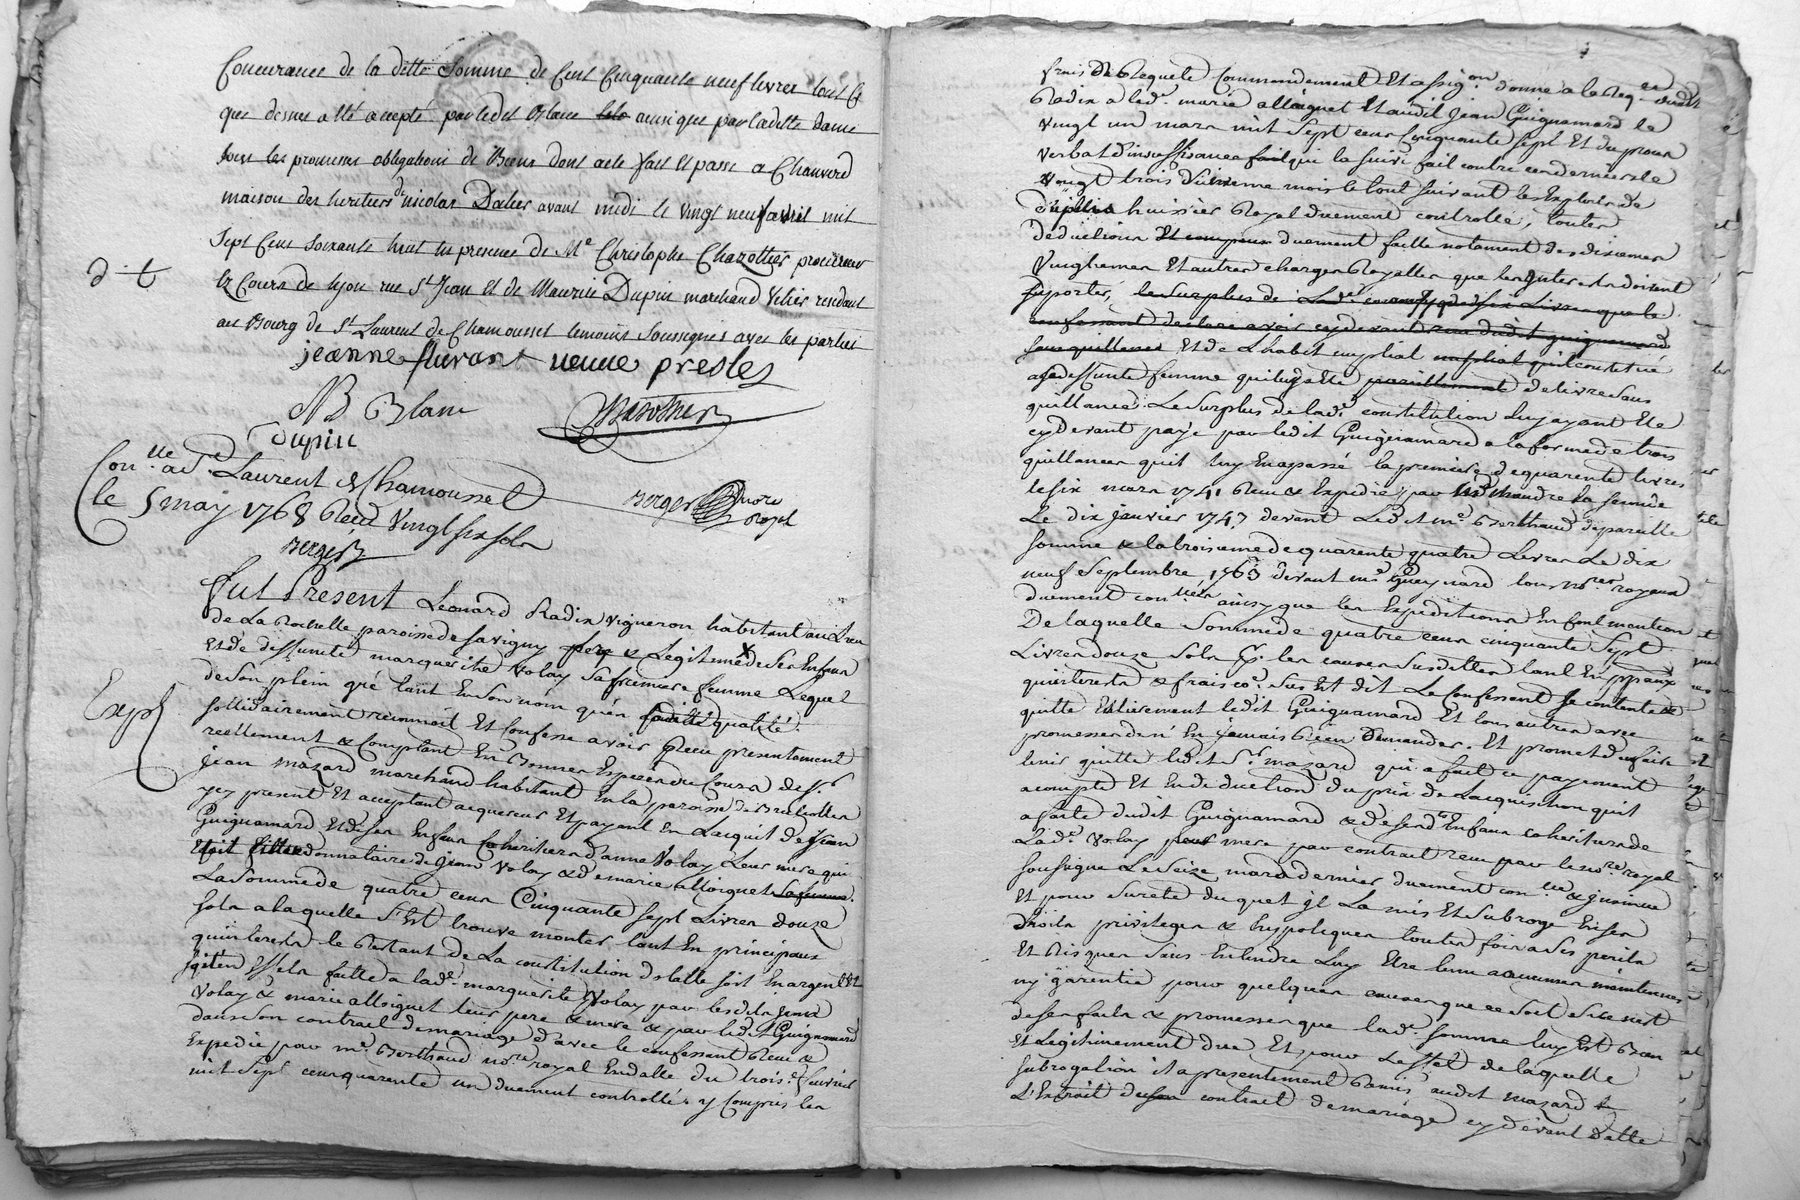 Concurance de la ditte Somme de Cent Cinquante neuf livres tout Ce
que dessus a été accepté par ledit Blanc ainsi que par laditte dame
Sous les promesses obligations de Biens dont acte fait et passé a Chauverd
maison des heritiers de nicolas avant midi le vingt neuf avril mil
Sept Cent Soixante huit En presence de Me Christophe Chazottier procureur
Ez Cours de lyon rue St Jean Et de Maurice Dupin marchand résidant
au Bourg de St Laurent de Chamousset temoins Soussignes avec les parties
jeanne fluvant veuve presles
Blanc
Dupin
Conlle a St Laurent de Chamousset
le 5 may 1768 Recu vingt six sols
Berger
Berger nore royal
d. t
Fut Present Léonard Radix vigneron habitant au Lieu
de La Rochelle paroisse de savigny pere & Legitime de Ses Enfans
Et de deffunte marguerite Volay Sa premiere femme Lequel
de Son plein gré tant En Son nom qu'en laditte qualité
Exp
Sollidairement reconnoit Et Confesse avoir Receu presentement
reellement & Comptant En Bonnes Especes du Cours de Sr
jean mazard marchand habitant En la paroisse de
ycy present Et acceptant acquereur Et payant En Lacquit de Jean
Guignamard Et de ses Enfans Coheritiers d'anne Volay Leur mere qui
donnataire de Jean Volay & de marie alloignet Sa femme
La Somme de quatre cens Cinquante Sept Livres douze
Sols a laquelle S'Est trouvé monter tant En principaux
qu'interests le Restant de La constitution dotalle soit En argent Et
faitte a lade marguerite Volay par lesdits Jean
Volay & marie alloignet leur pere & mere & par ledt Guignamard
dans Son contrait de mariage d'avec le confessant Receu &
Expedié par me Berthaud nore royal En datte du trois fevrier
mil Sept cens quarente un duement controllé y Compris les
frais de Requete Commandement Et assigon donné a la Reqte dudit
Radix a lade marie alloignet Et audit Jean Guignamard le
vingt un mars mil Sept cens Cinquante Sept Et du proces
verbal d'insuffisance qui la suivi fait contre ces derniers le
vingt trois du meme mois le tout Suivant les Exploits de
huissier Royal duement controllé, toutes
deductions duement faitte notament des dixiemes
vingtiemes Et autres charges Royalles que les interests doivent
suporter, le Surplus de Livres que le
confessant declare avoir cy devant dudit guignamard
Sans quittance Et de Lhabit nuptial qu'il constitué
a feu deffunte femme qui luy a été delivré Sans
quittance. Le Surplus de lade constitution luy ayant Eté
cy devant payé par ledit Guignamard a la forme de trois
quittances qu'il luy En a passé la premiere de quarente livres
le six mars 1741 Receu & Expedié par la seconde
Le dix janvier 1747 devant Ledit me Berthaud de pareille
Somme & la troisieme de quarente quatre Livres Le dix
neuf Septembre 1763 devant me Gueynard tous nores royaux
duement conlles ainsy que les Expeditions En font mention
De laquelle Somme de quatre cens cinquante Sept
Livres douze Sols pr les causes Susdittes tant En ppaux
qu'interests & frais co. Sus Est dit Le Confessant Se contente &
quitte Entierement ledit Guignamard Et tous autres avec
promesse de n'En jamais Rien Demander. Et promet d'En faire
tenir quitte ledit Sr mazard qui a fait ce payement
a compte Et En deduction du prix de Lacquisition qu'il
a faitte dudit Guignamard & de Sesdts Enfans coheritiers de
Lade Volay leur mere par contrait recu par le nore royal
Soussigné Le Seize mars dernier duement conlle & insinué
Et pour Sureté du quel il La mis Et Subrogé En Ses
droits privileges & hyppoteques toutes fois a Ses perils
Et Risques Sans Entendre Luy Etre tenu a aucune maintenue
ny garentie pour quelques causes que ce soit Si ce n'est
de ses faits & promesses que lade Somme luy Est Bien
Et Legitimement due Et pour Leffet de laquelle
Subrogation il a presentement Remis audit mazard
L'Extrait de son contrait de mariage cy devant datté